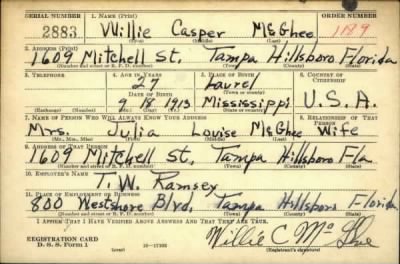 SERIAL NUMBER 1. NAME (Print) ORDER NUMBER
2883 Willie Casper McGhee 1189
(First) (Middle) (Last)
2. ADDRESS (Print)
1609 Mitchell St. Tampa Hillsboro Florida
(Number and street or R. F. D. number) (Town) (County) (State)
3. TELEPHONE 4. AGE IN YEARS 5. PLACE OF BIRTH 6. COUNTRY OF CITIZENSHIP
27 Laurel
DATE OF BIRTH (Town or county)
9 18 1913 Mississippi U.S.A.
(Exchange) (Number) (Mo.) (Day) (Yr.) (State or country)
7. NAME OF PERSON WHO WILL ALWAYS KNOW YOUR ADDRESS 8. RELATIONSHIP OF THAT PERSON
Mrs. Julia Louise McGhee Wife
(Mr., Mrs., Miss) (First) (Middle) (Last)
9. ADDRESS OF THAT PERSON
1609 Mitchell St, Tampa Hillsboro Fla
(Number and street or R. F. D. number) (Town) (County) (State)
10. EMPLOYER'S NAME
T. W. Ramsey
11. PLACE OF EMPLOYMENT OR BUSINESS
800 Westshore Blvd, Tampa Hillsboro Florida
(Number and street or R. F. D. number) (Town) (County) (State)
I AFFIRM THAT I HAVE VERIFIED ABOVE ANSWERS AND THAT THEY ARE TRUE.
REGISTRATION CARD
D. S. S. Form 1 (over) 16-17105 Willie C McGhee
(Registrant's signature)